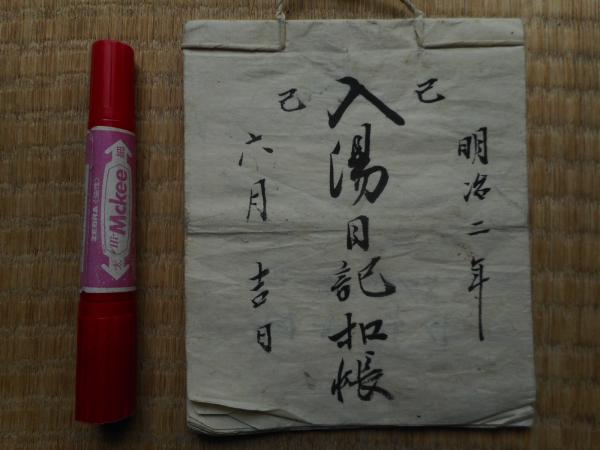 己 明治二年
入湯日記扣帳
己 六月 吉日
細
Mckee
ZEBRA
太